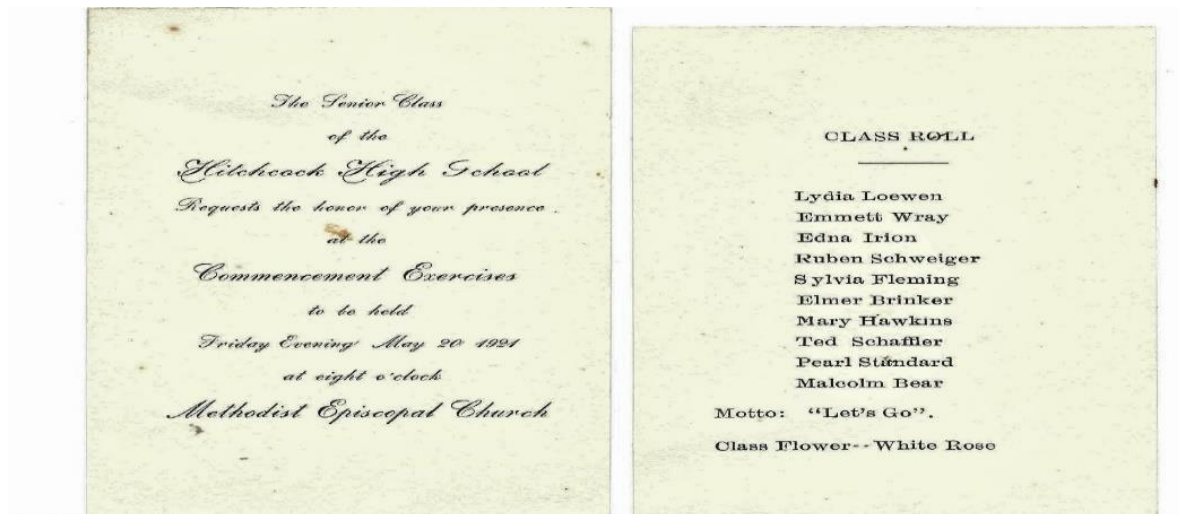 The Senior Class
of the
Hitchcock High School
Requests the honor of your presence
at the
Commencement Exercises
to be held
Friday Evening May 20 1921
at eight o'clock
Methodist Episcopal Church
CLASS ROLL
Lydia Loewen
Emmett Wray
Edna Irion
Ruben Schweiger
Sylvia Fleming
Elmer Brinker
Mary Hawkins
Ted Schaffler
Pearl Standard
Malcolm Bear
Motto: "Let's Go".
Class Flower--White Rose